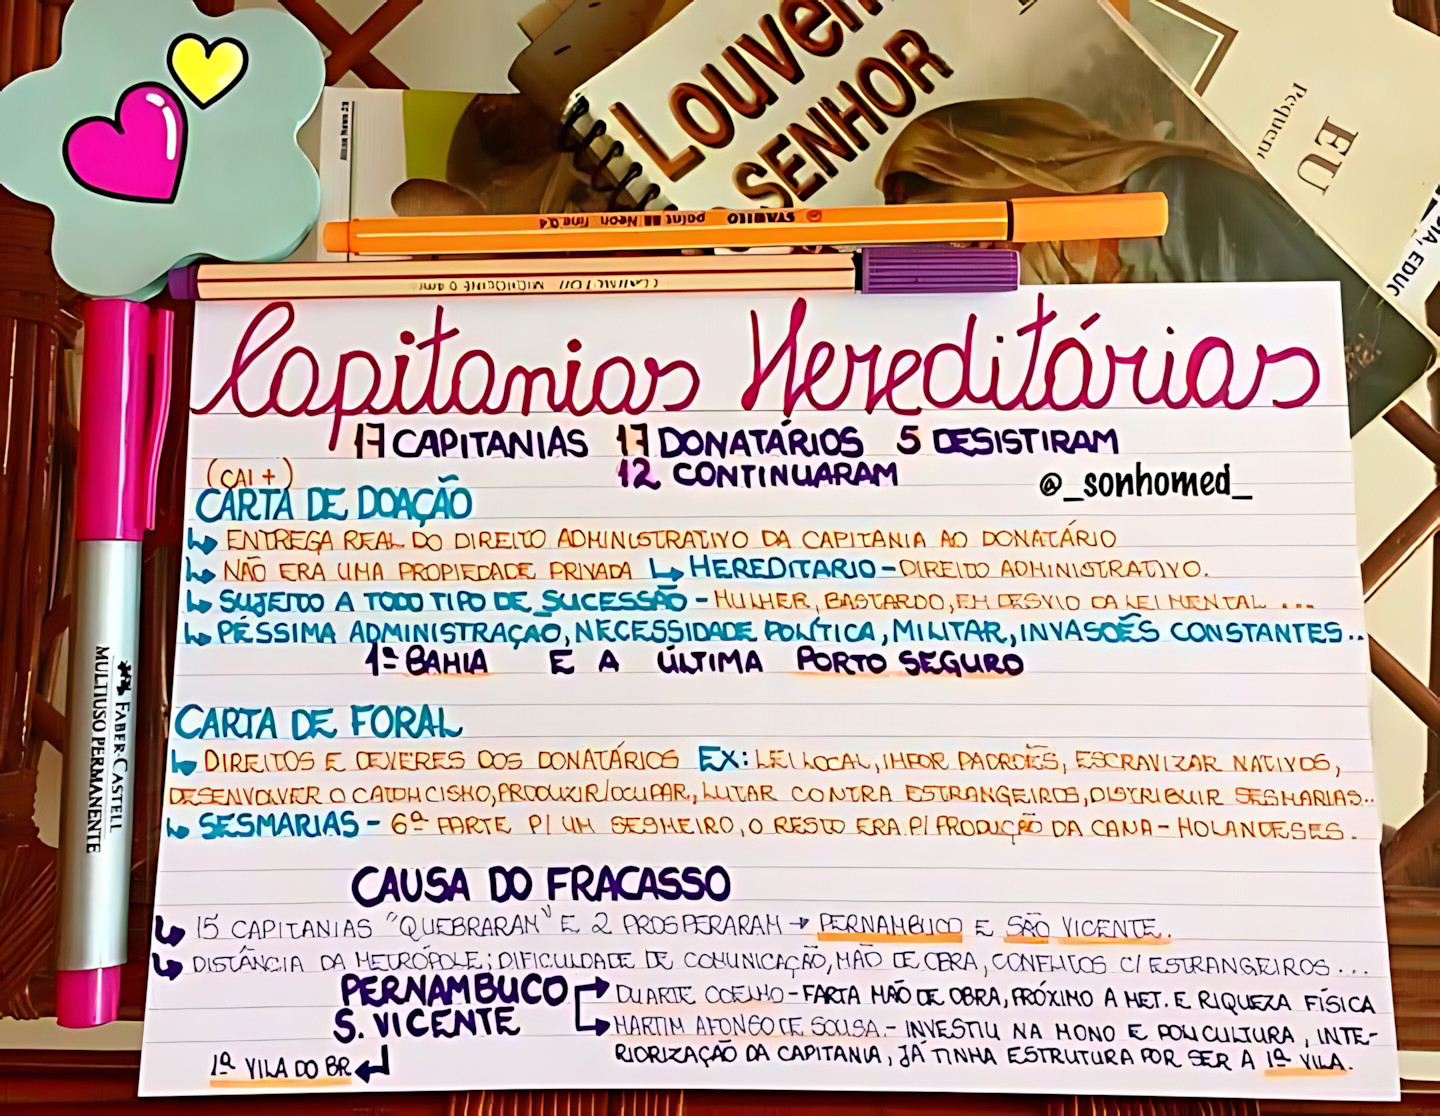 Louvem
SENHOR
EU
Pequeno
IA, EDUC
STABILO point 88 Neon fine 0,4
Capitanias Hereditárias
17 CAPITANIAS 17 DONATÁRIOS 5 DESISTIRAM
12 CONTINUARAM
@_sonhomed_
(CAI +)
CARTA DE DOAÇÃO
↳ ENTREGA REAL DO DIREITO ADMINISTRATIVO DA CAPITANIA AO DONATÁRIO
↳ NÃO ERA UMA PROPIEDADE PRIVADA ↳ HEREDITARIO - DIREITO ADMINISTRATIVO.
↳ SUJEITO A TODO TIPO DE SUCESSÃO - MULHER, BASTARDO, EM DESVIO DA LEI MENTAL ...
↳ PÉSSIMA ADMINISTRAÇÃO, NECESSIDADE POLÍTICA, MILITAR, INVASÕES CONSTANTES..
1ª BAHIA E A ÚLTIMA PORTO SEGURO
CARTA DE FORAL
↳ DIREITOS E DEVERES DOS DONATÁRIOS EX: LEI LOCAL, IMPOR PADRÕES, ESCRAVIZAR NATIVOS,
DESENVOLVER O CATOLICISMO, PRODUZIR/OCUPAR, LUTAR CONTRA ESTRANGEIROS, DISTRIBUIR SESMARIAS..
↳ SESMARIAS - 6ª PARTE P/ UM SESMEIRO, O RESTO ERA P/ PRODUÇÃO DA CANA - HOLANDESES.
CAUSA DO FRACASSO
↳ 15 CAPITANIAS "QUEBRARAM" E 2 PROSPERARAM → PERNAMBUCO E SÃO VICENTE.
↳ DISTÂNCIA DA METRÓPOLE; DIFICULDADE DE COMUNICAÇÃO, MÃO DE OBRA, CONFLITOS C/ ESTRANGEIROS ...
PERNAMBUCO → DUARTE COELHO - FARTA MÃO DE OBRA, PRÓXIMO A MET. E RIQUEZA FÍSICA
S. VICENTE → MARTIM AFONSO DE SOUSA - INVESTIU NA MONO E POLICULTURA, INTE-
RIORIZAÇÃO DA CAPITANIA, JÁ TINHA ESTRUTURA POR SER A 1ª VILA.
1ª VILA DO BR
FABER-CASTELL
MULTIUSO PERMANENTE